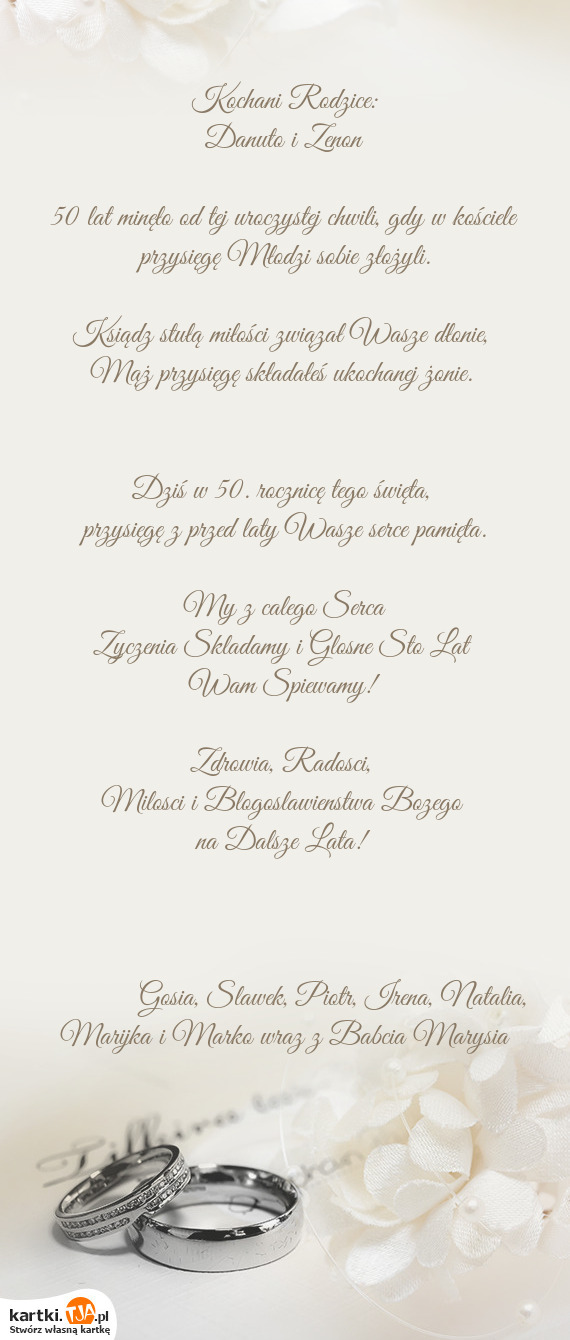 Kochani Rodzice:
Danuto i Zenon
50 lat minęło od tej uroczystej chwili, gdy w kościele
przysięgę Młodzi sobie złożyli.
Ksiądz stułą miłości związał Wasze dłonie,
Mąż przysięgę składałeś ukochanej żonie.
Dziś w 50. rocznicę tego święta,
przysięgę z przed laty Wasze serce pamięta.
My z calego Serca
Zyczenia Skladamy i Glosne Sto Lat
Wam Spiewamy!
Zdrowia, Radosci,
Milosci i Blogoslawienstwa Bozego
na Dalsze Lata!
Gosia, Slawek, Piotr, Irena, Natalia,
Marijka i Marko wraz z Babcia Marysia
kartki.TJA.pl
Stwórz własną kartkę